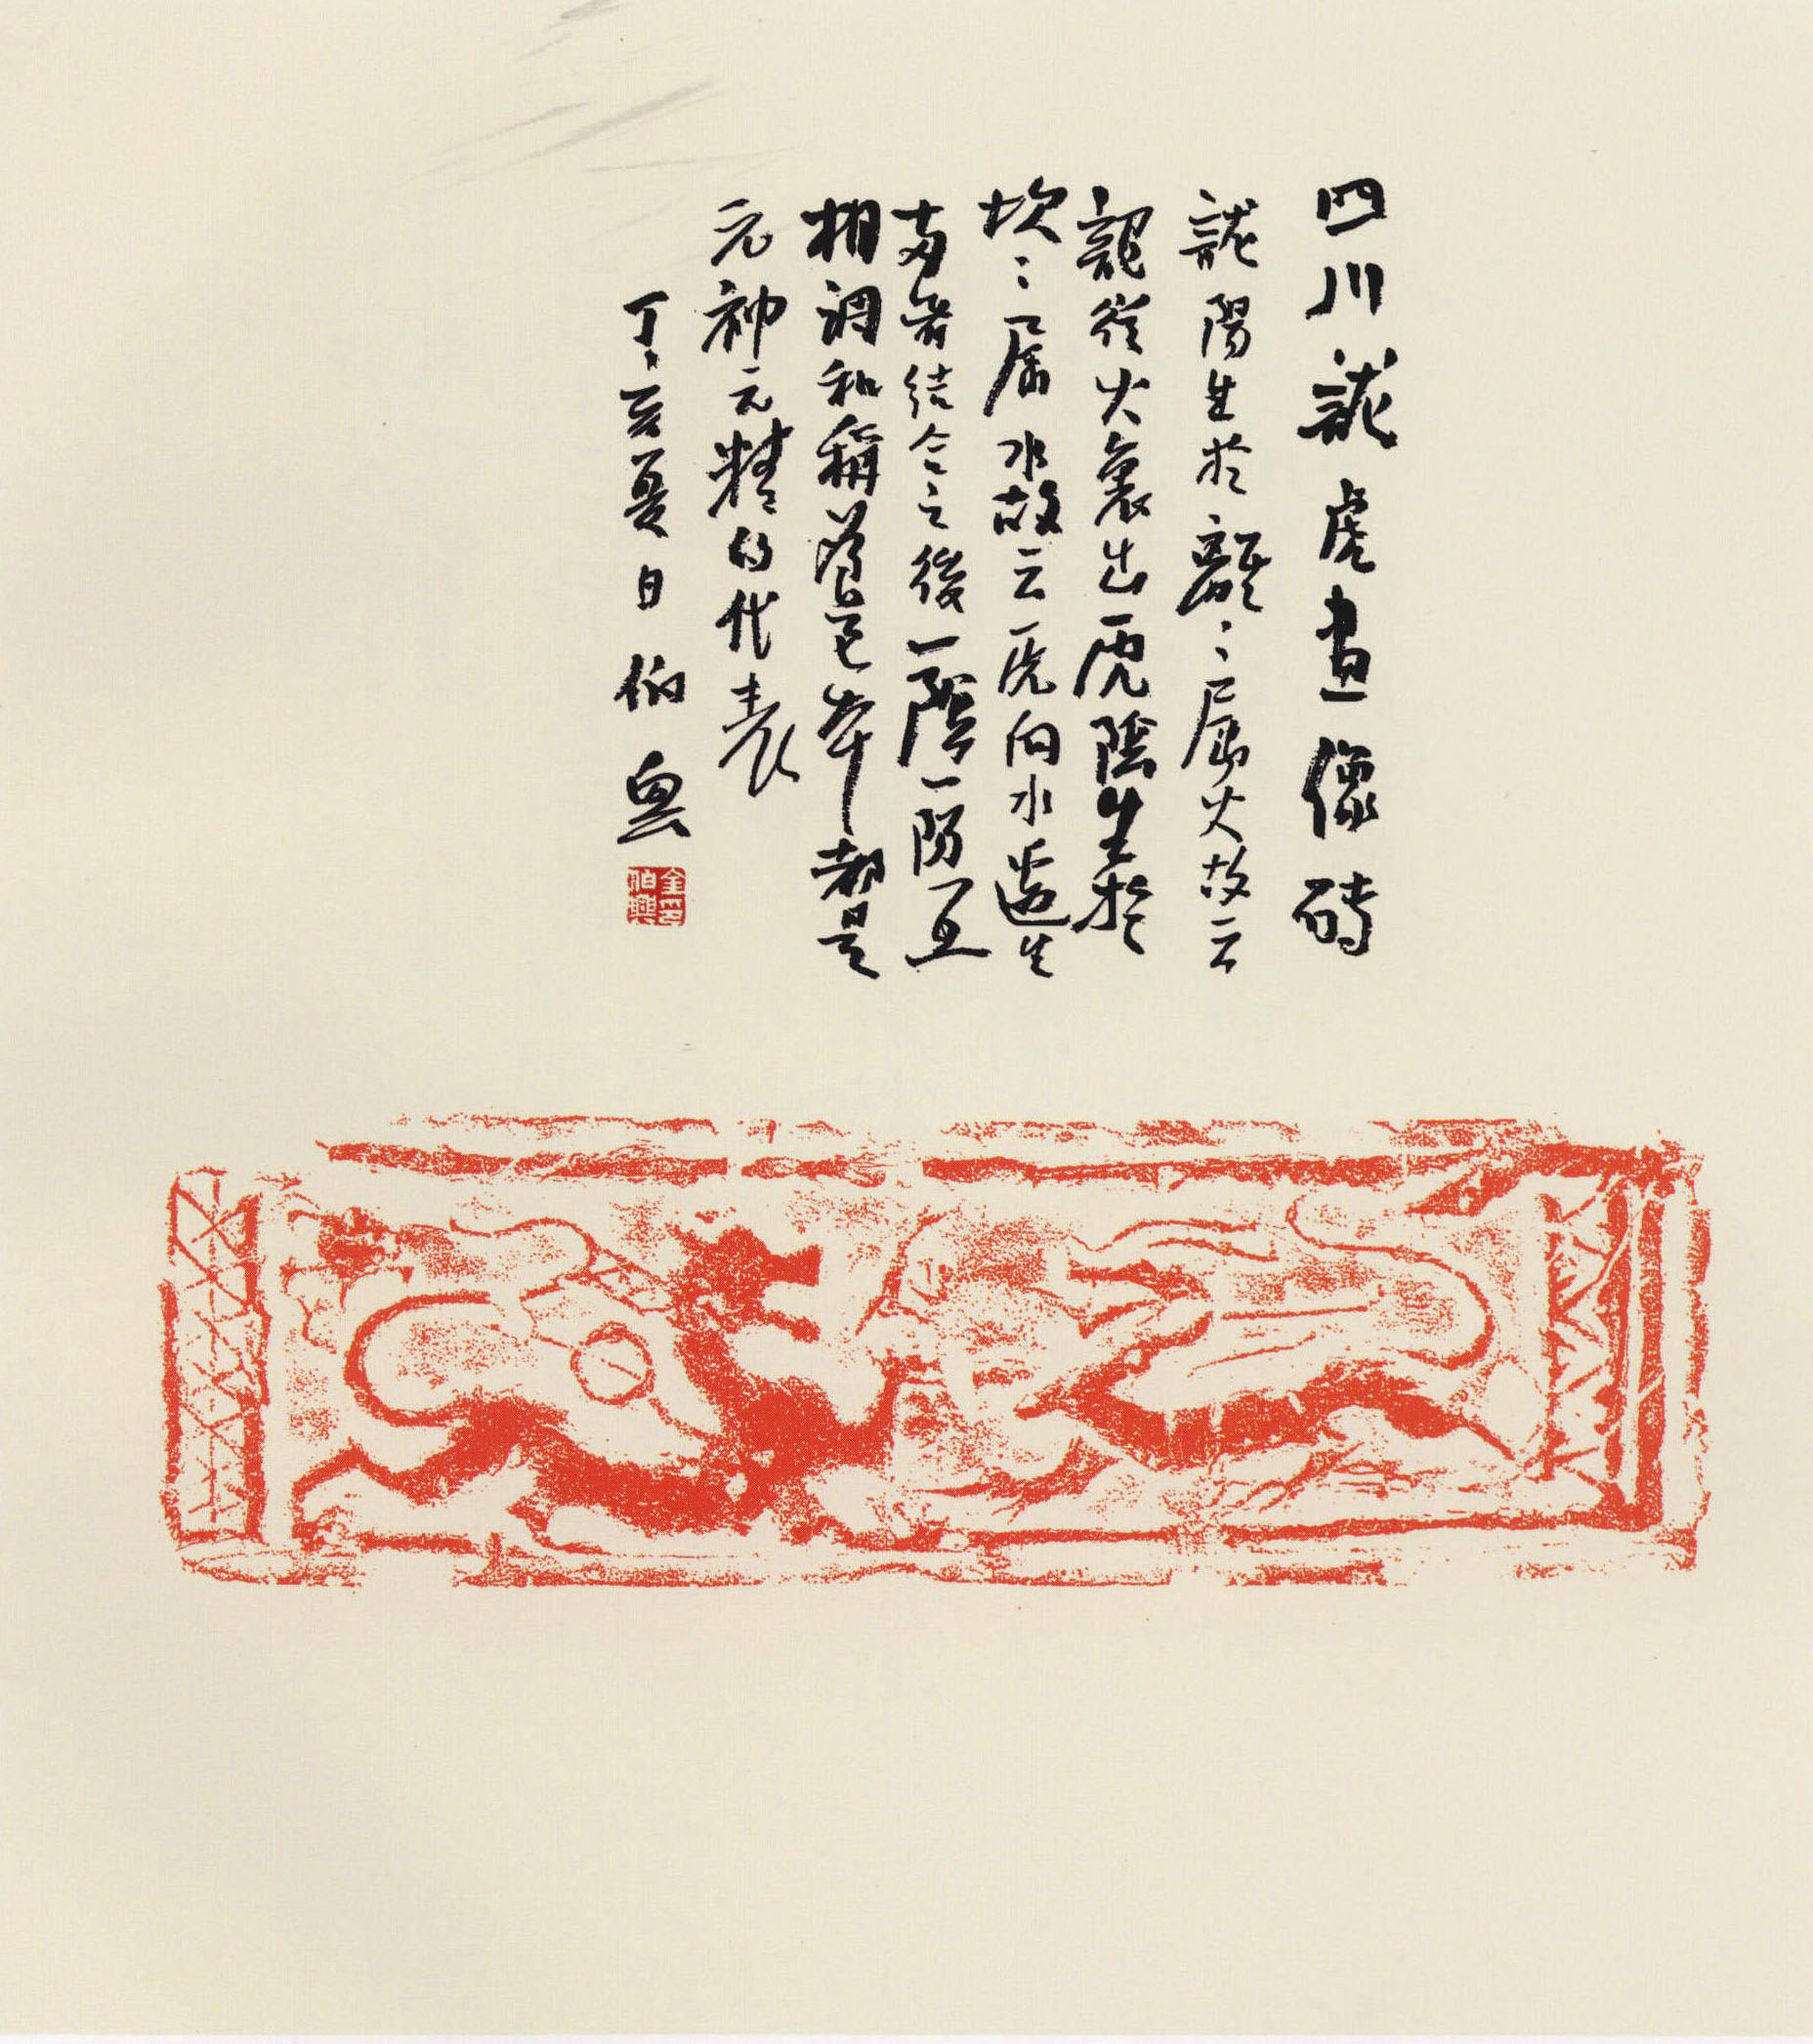 四川龍虎畫像磚
龍陽生於離〻屬火故云
龍從火裏出虎陰生於
坎〻屬水故云虎向水邊生
兩者結合之後一陰一陽互
相調和稱道本都是
元神元精的代表
丁亥夏日伯興
金氏伯興